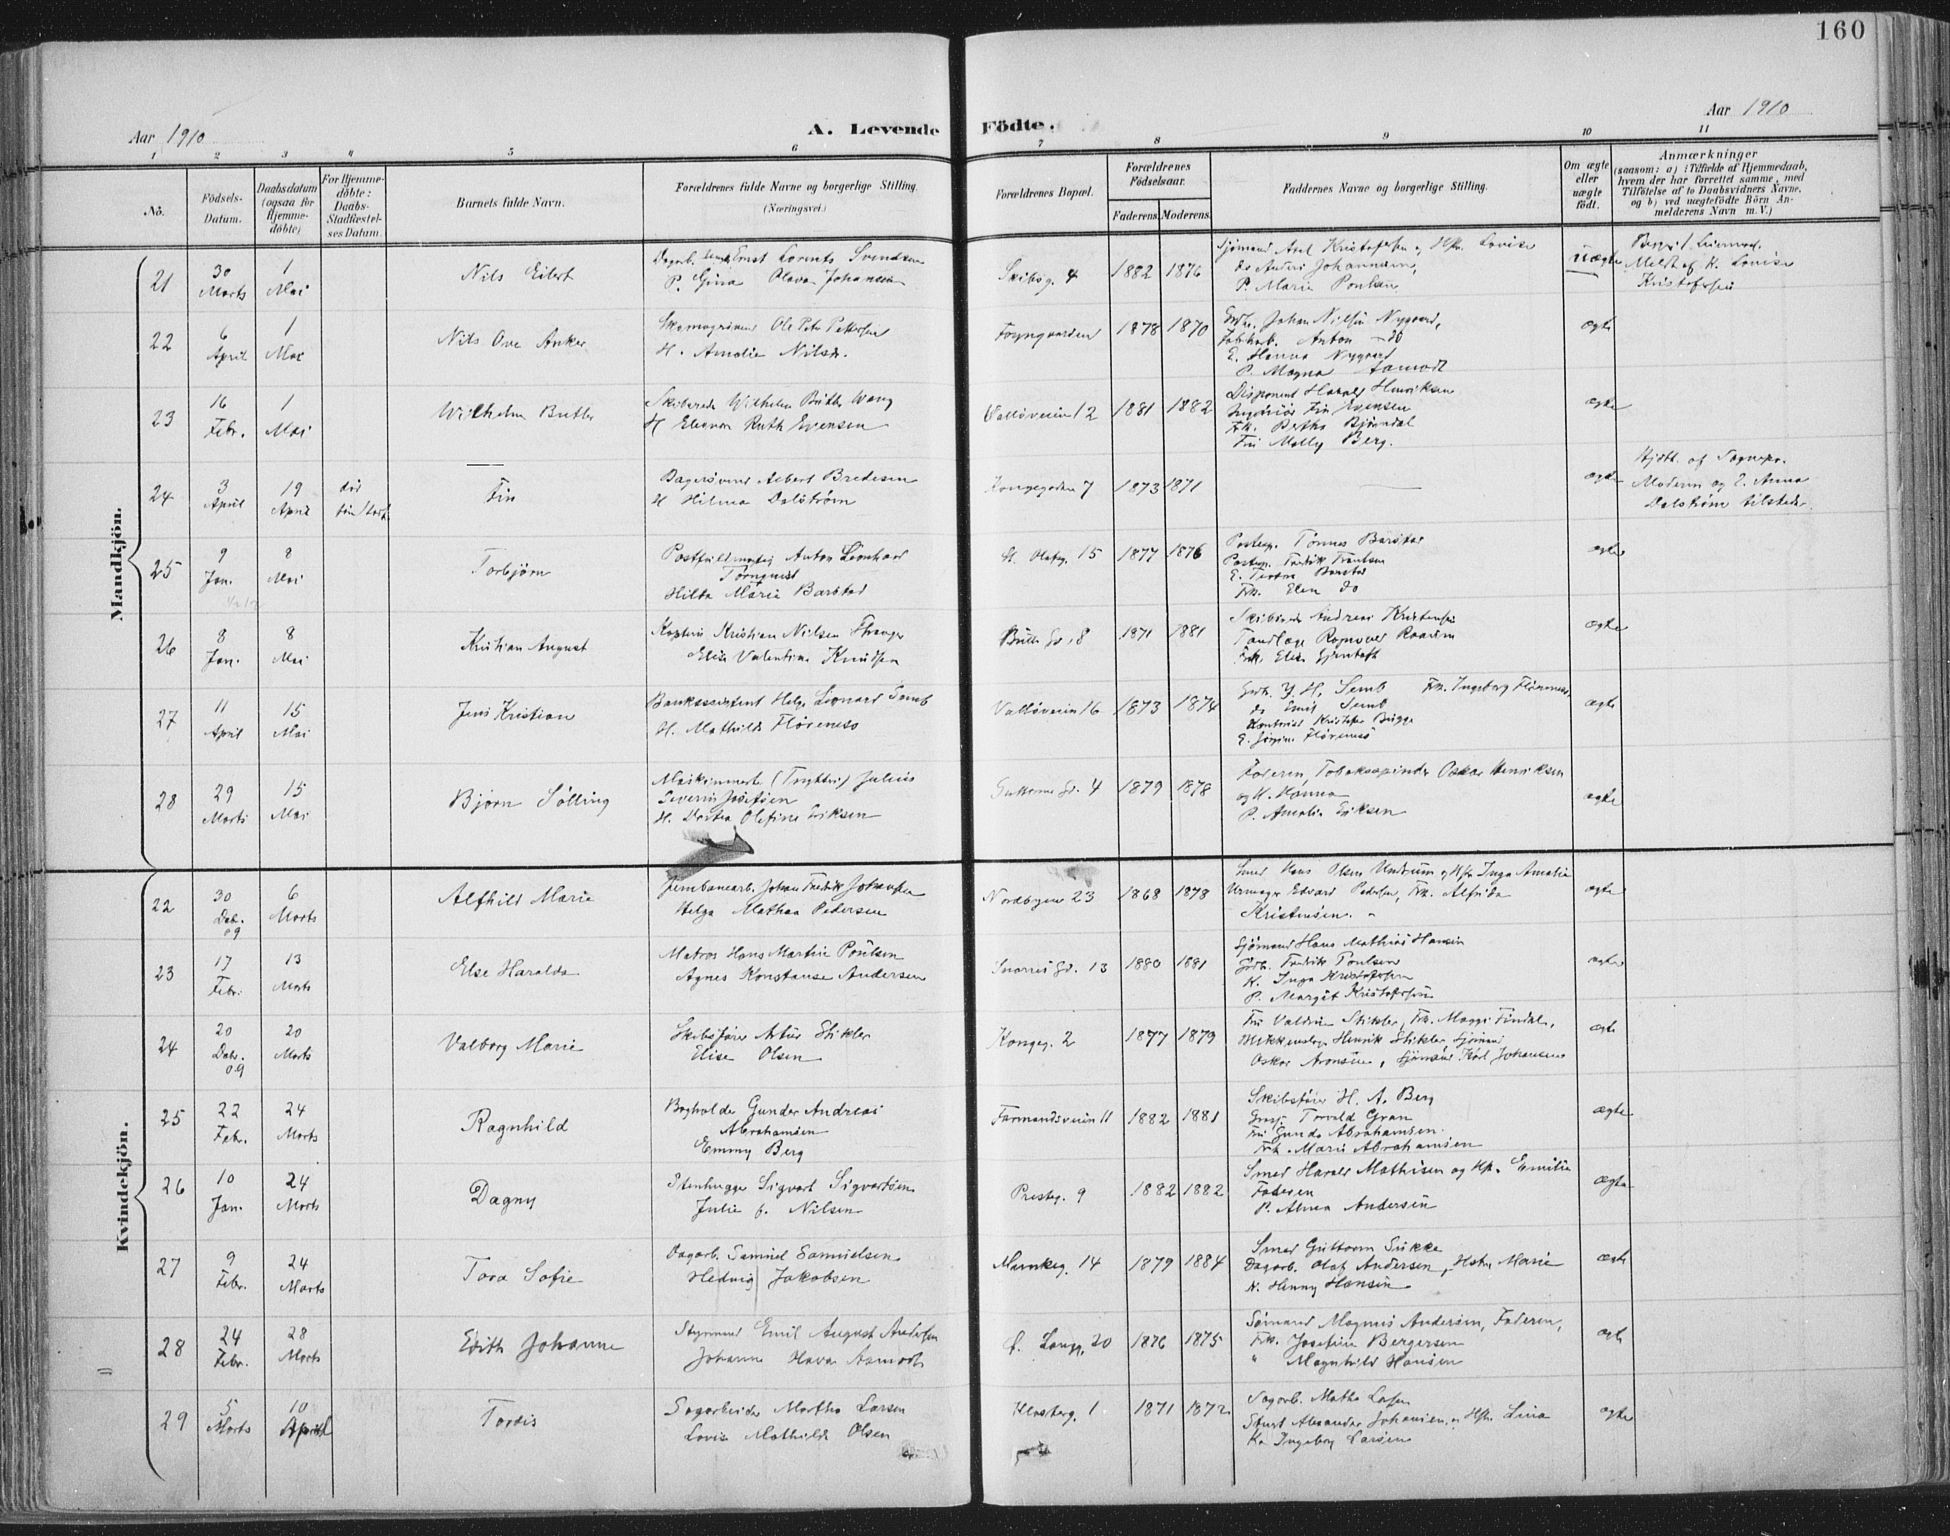 160
Aar 1910
A. Levende Födte.
Aar 1910
1 2 3 4 5 6 7 8 9 10 11
No.
Födsels-Datum.
Daabsdatum (ogsaa for Hjemme-döbte)
For Hjemme-döbte: Daabs-Stadfæstel-ses Datum.
Barnets fulde Navn.
Forældrenes fulde Navne og borgerlige Stilling.
(Næringsvei.)
Forældrenes Bopæl.
Forældrenes Födselsaar.
Faderens. Moderens.
Faddernes Navne og borgerlige Stilling.
Om ægte eller uægte födt.
Anmærkninger
(saasom: a) i Tilfælde af Hjemmedaab,
hvem der har forrettet samme, med
Tilföielse af to Daabsvidners Navne,
og b) ved uægtefödte Börn An-
melderens Navn m. V.)
Mandkjön.
21 30 Marts 1 Mai Nils Eilert
Ernst Lorentz Svendsen
P. Gina Olava Johansen
Skibsg. 4 1882 1876
Sjømand Axel Kristofersen og Hstr. Lovise
do Anders Johannesen,
P. Marie Poulsen
uægte
Meldt af K. Lovise
Kristofersen
22 6 April 1 Mai Nils Ove Anker
Skomagersvend Ole Petter Pettersen
H. Amalie Nilsdr.
Fayngaarden 1878 1870
Johan Nilsen Nygaard,
Fabrkarb. Anton do
E. Hanna Nygaard
P. Magna Aamodt
ægte
23 16 Febr. 1 Mai Wilhelm Butler
Skibsreder Wilhelm Butler Wang
H. Eleonor Ruth Evensen
Valløveien 12 1881 1882
Disponent Harald Henriksen
Ingeniör Fin Evensen
Frk. Bertha Bjørndal
Fru Molly Berg.
ægte
24 3 April 19 April död för stadf. Fin
Bagersvend Albert Bredesen
H. Hilma Dalström
Kongegaden 7 1873 1871
ægte
Hjdbt. af Sognepr.
Moderen og E. Anna
Dalström tilstede.
25 9 Jan. 8 Mai Torbjörn
Postfuldmægtig Anton Leonhard
Tornquist
Hilda Marie Barstad
St. Olafsg. 15 1877 1876
Postexp. Tønnes Barstad
Postexp. Fredrik Frantsen
E. Barstad
Frk. Elen do
ægte
26 8 Jan. 8 Mai Kristian August
Kaptein Kristian Nilsen Stranger
Elise Valentine Knudsen
Bulls Gd. 8 1871 1881
Skibsreder Andreas Kristensen
Tandlæge Ragnvar Raarum
Frk. Elise Gjertsen
ægte
27 11 April 15 Mai Jens Kristian
Bankassistent Helge Leonard Semb
H. Mathilde Florenæs
Valløveien 16 1873 1874
Y. H. Semb Frk. Ingeborg Florenæs
do Emil Semb
Kontorist Kristofer Bugge
E. Jørgine Florenæs
ægte
28 29 Marts 15 Mai Bjørn Sölling
Maskinmester (Trykkeri) Julius
Severin Josefsen
H. Dortea Olefine Eriksen
Guttorms Gd. 4 1879 1878
Faderen, Tobakspinder Oskar Henriksen
og H. Hanna
P. Amalie Eriksen
ægte
Kvindekjön.
22 30 Deb. 09 6 Marts Alfhild Marie
Jernbanearb. Johan Fredrik Johansen
Helga Mathea Pedersen
Nordbyene 23 1868 1878
Smed Hans Olsen Undrum og Hstr Inga Amalie
Urmager Edvard Pedersen, Frk. Alfrida
Kristensen.
ægte
23 17 Febr. 13 Marts Else Haralda
Matros Hans Martin Poulsen
Agnes Konstanse Andersen
Snorres Gd. 13 1880 1881
Sjömand Hans Mathias Hansen
Gdb. Fredrik Poulsen
K. Inga Kristofersen
P. Margit Kristofersen
ægte
24 20 Debr. 09 20 Marts Valborg Marie
Skibsfører Artur Stikler
Elise Olsen
Kongeg. 2 1877 1879
Fru Valdrine Stikler, Frk. Maggi Findal,
Henrik Stikler Sjömand
Oskar Aronsen, Sjömand Karl Johansen
ægte
25 22 Febr. 24 Marts Ragnhild
Bogholder Gunder Andreas
Abrahamsen
Emmy Berg
Farmandsveien 11 1882 1881
Skibsfører H. A. Berg
Torvald Gran
Fru Gunda Abrahamsen.
Frk. Marie Abrahamsen
ægte
26 10 Jan. 24 Marts Dagny
Stenhugger Sigvart Sigvartsen
Julie f. Nilsen
Presteg. 9 1882 1882
Smed Harald Mathisen og Hst. Emilie
Faderen
P. Alma Andersen
ægte
27 9 Febr. 24 Marts Tora Sofie
Dagarb. Samuel Samuelsen
Hedvig Jakobsen
Munkeg. 14 1879 1884
Smed Guttorm Sukke
Dagarb. Olaf Andersen, Hstr Marie
K. Henny Hansen
ægte
28 24 Febr. 28 Marts Edith Johanne
Styrmand Emil August Andersen
Johanne Hava Aamodt
f. Langg. 20 1876 1875
Sömand Magnus Andersen, Faderen,
Frk. Josefine Bergersen
" Magnhild Hansen
ægte
29 5 Marts 10 April Tordis
Sagarbeider Martha Larsen
Lovise Mathilde Olsen
Klosterg. 1 1871 1872
Sagarb. Mathe Larsen
Alexander Johansen og Hstr. Lina
K. Ingeborg Larsen
ægte